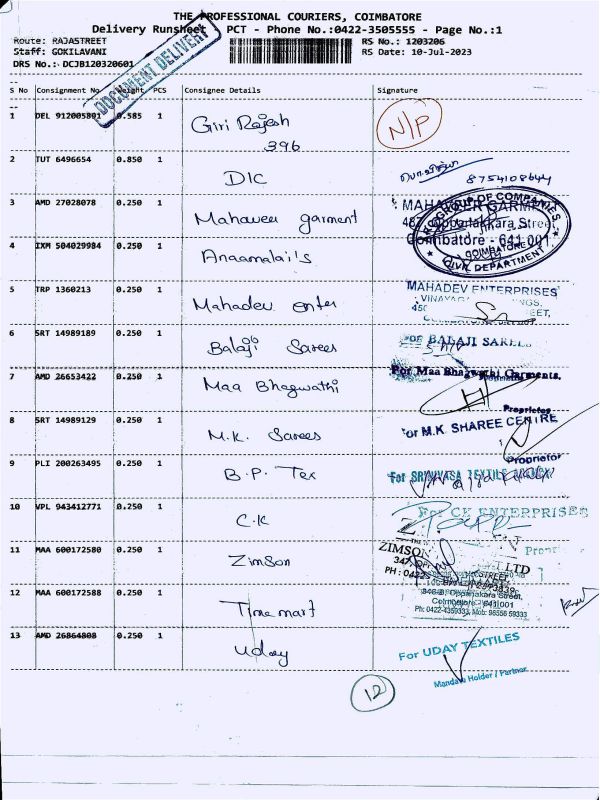 THE PROFESSIONAL COURIERS, COIMBATORE
Delivery Runsheet PCT - Phone No.:0422-3505555 - Page No.:1
Route: RAJASTREET RS No.: 1203206
Staff: GOKILAVANI RS Date: 10-Jul-2023
DRS No.: DCJB120320601
DOCUMENT DELIVERY
S No Consignment No Weight PCS Consignee Details Signature
1 DEL 912005801 0.585 1 Giri Rajesh N/P
396
2 TUT 6496654 0.850 1 DIC 8754108644
3 AMD 27028078 0.250 1 Mahaveer garment
GROUP OF COMPANIES
Coimbatore - 641 001
COIMBATORE
CIVIL DEPARTMENT
4 IXM 504029984 0.250 1 Anaamalai's
5 TRP 1360213 0.250 1 Mahadev enter MAHADEV ENTERPRISES
6 SRT 14989189 0.250 1 Balaji Sarees BALAJI SAREES
7 AMD 26653422 0.250 1 Maa Bhagwathi For Maa Bhagwathi Garments,
Proprietor
8 SRT 14989129 0.250 1 M.K. Sarees For M.K. SHAREE CENTRE
Proprietor
9 PLI 200263495 0.250 1 B.P. Tex For SRINIVASA TEXTILE
10 VPL 943412771 0.250 1 C.K For CK ENTERPRISES
11 MAA 600172580 0.250 1 ZimSon ZIMSON
LTD
12 MAA 600172588 0.250 1 Time mart
346-B, Oppanakara Street,
Coimbatore - 641 001
Ph: 0422-4359333, Mob: 96556 59333
13 AMD 26864808 0.250 1 Uday For UDAY TEXTILES
Mandate Holder / Partner
12